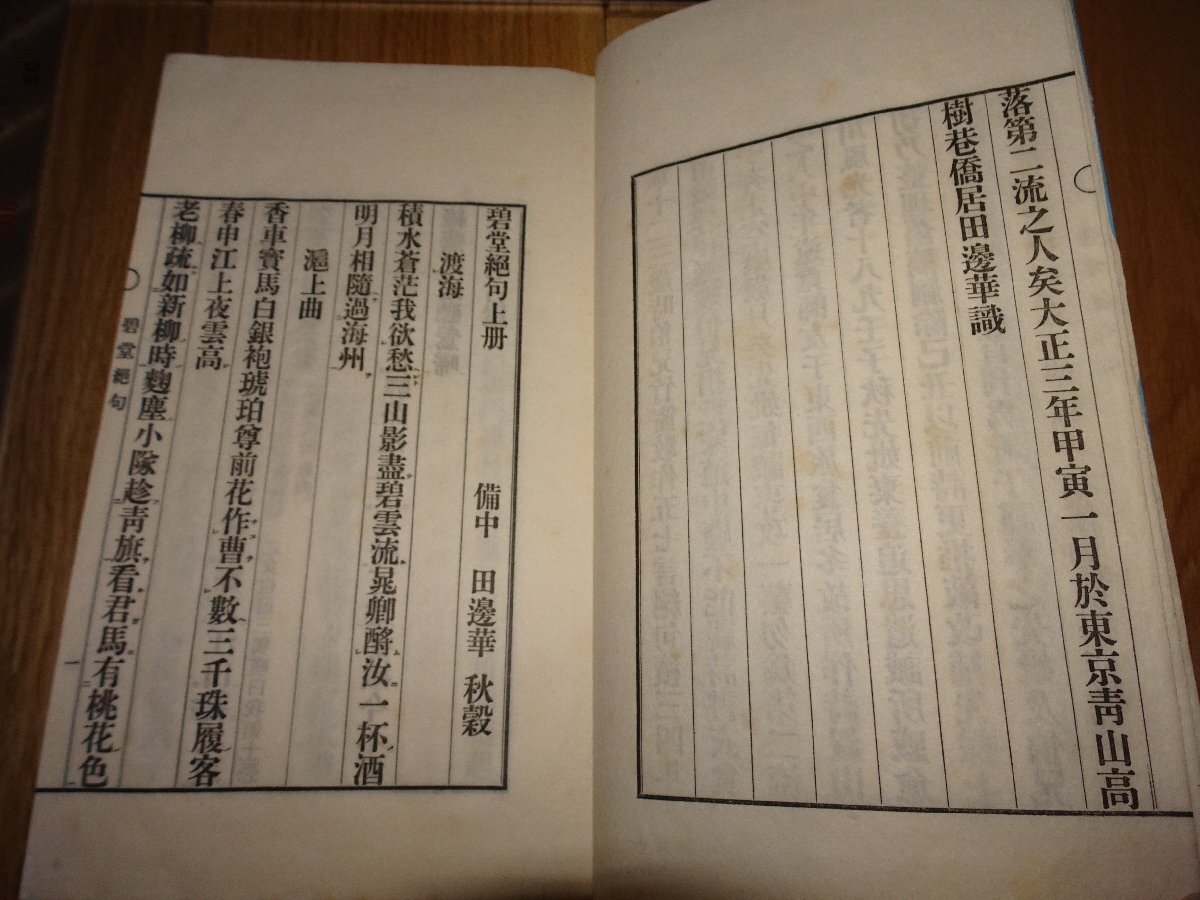 落第二流之人矣大正三年甲寅一月於東京青山高
樹巷僑居田邊華識
碧堂絕句上册
備中 田邊華 秋穀
渡海
積水蒼茫我欲愁三山影盡碧雲流晁卿酹汝一杯酒
明月相隨過海州
滬上曲
香車寶馬白銀袍琥珀尊前花作曹不數三千珠履客
春申江上夜雲高
老柳疏如新柳時麴塵小隊趁青旗看君馬有桃花色
碧堂絕句
一